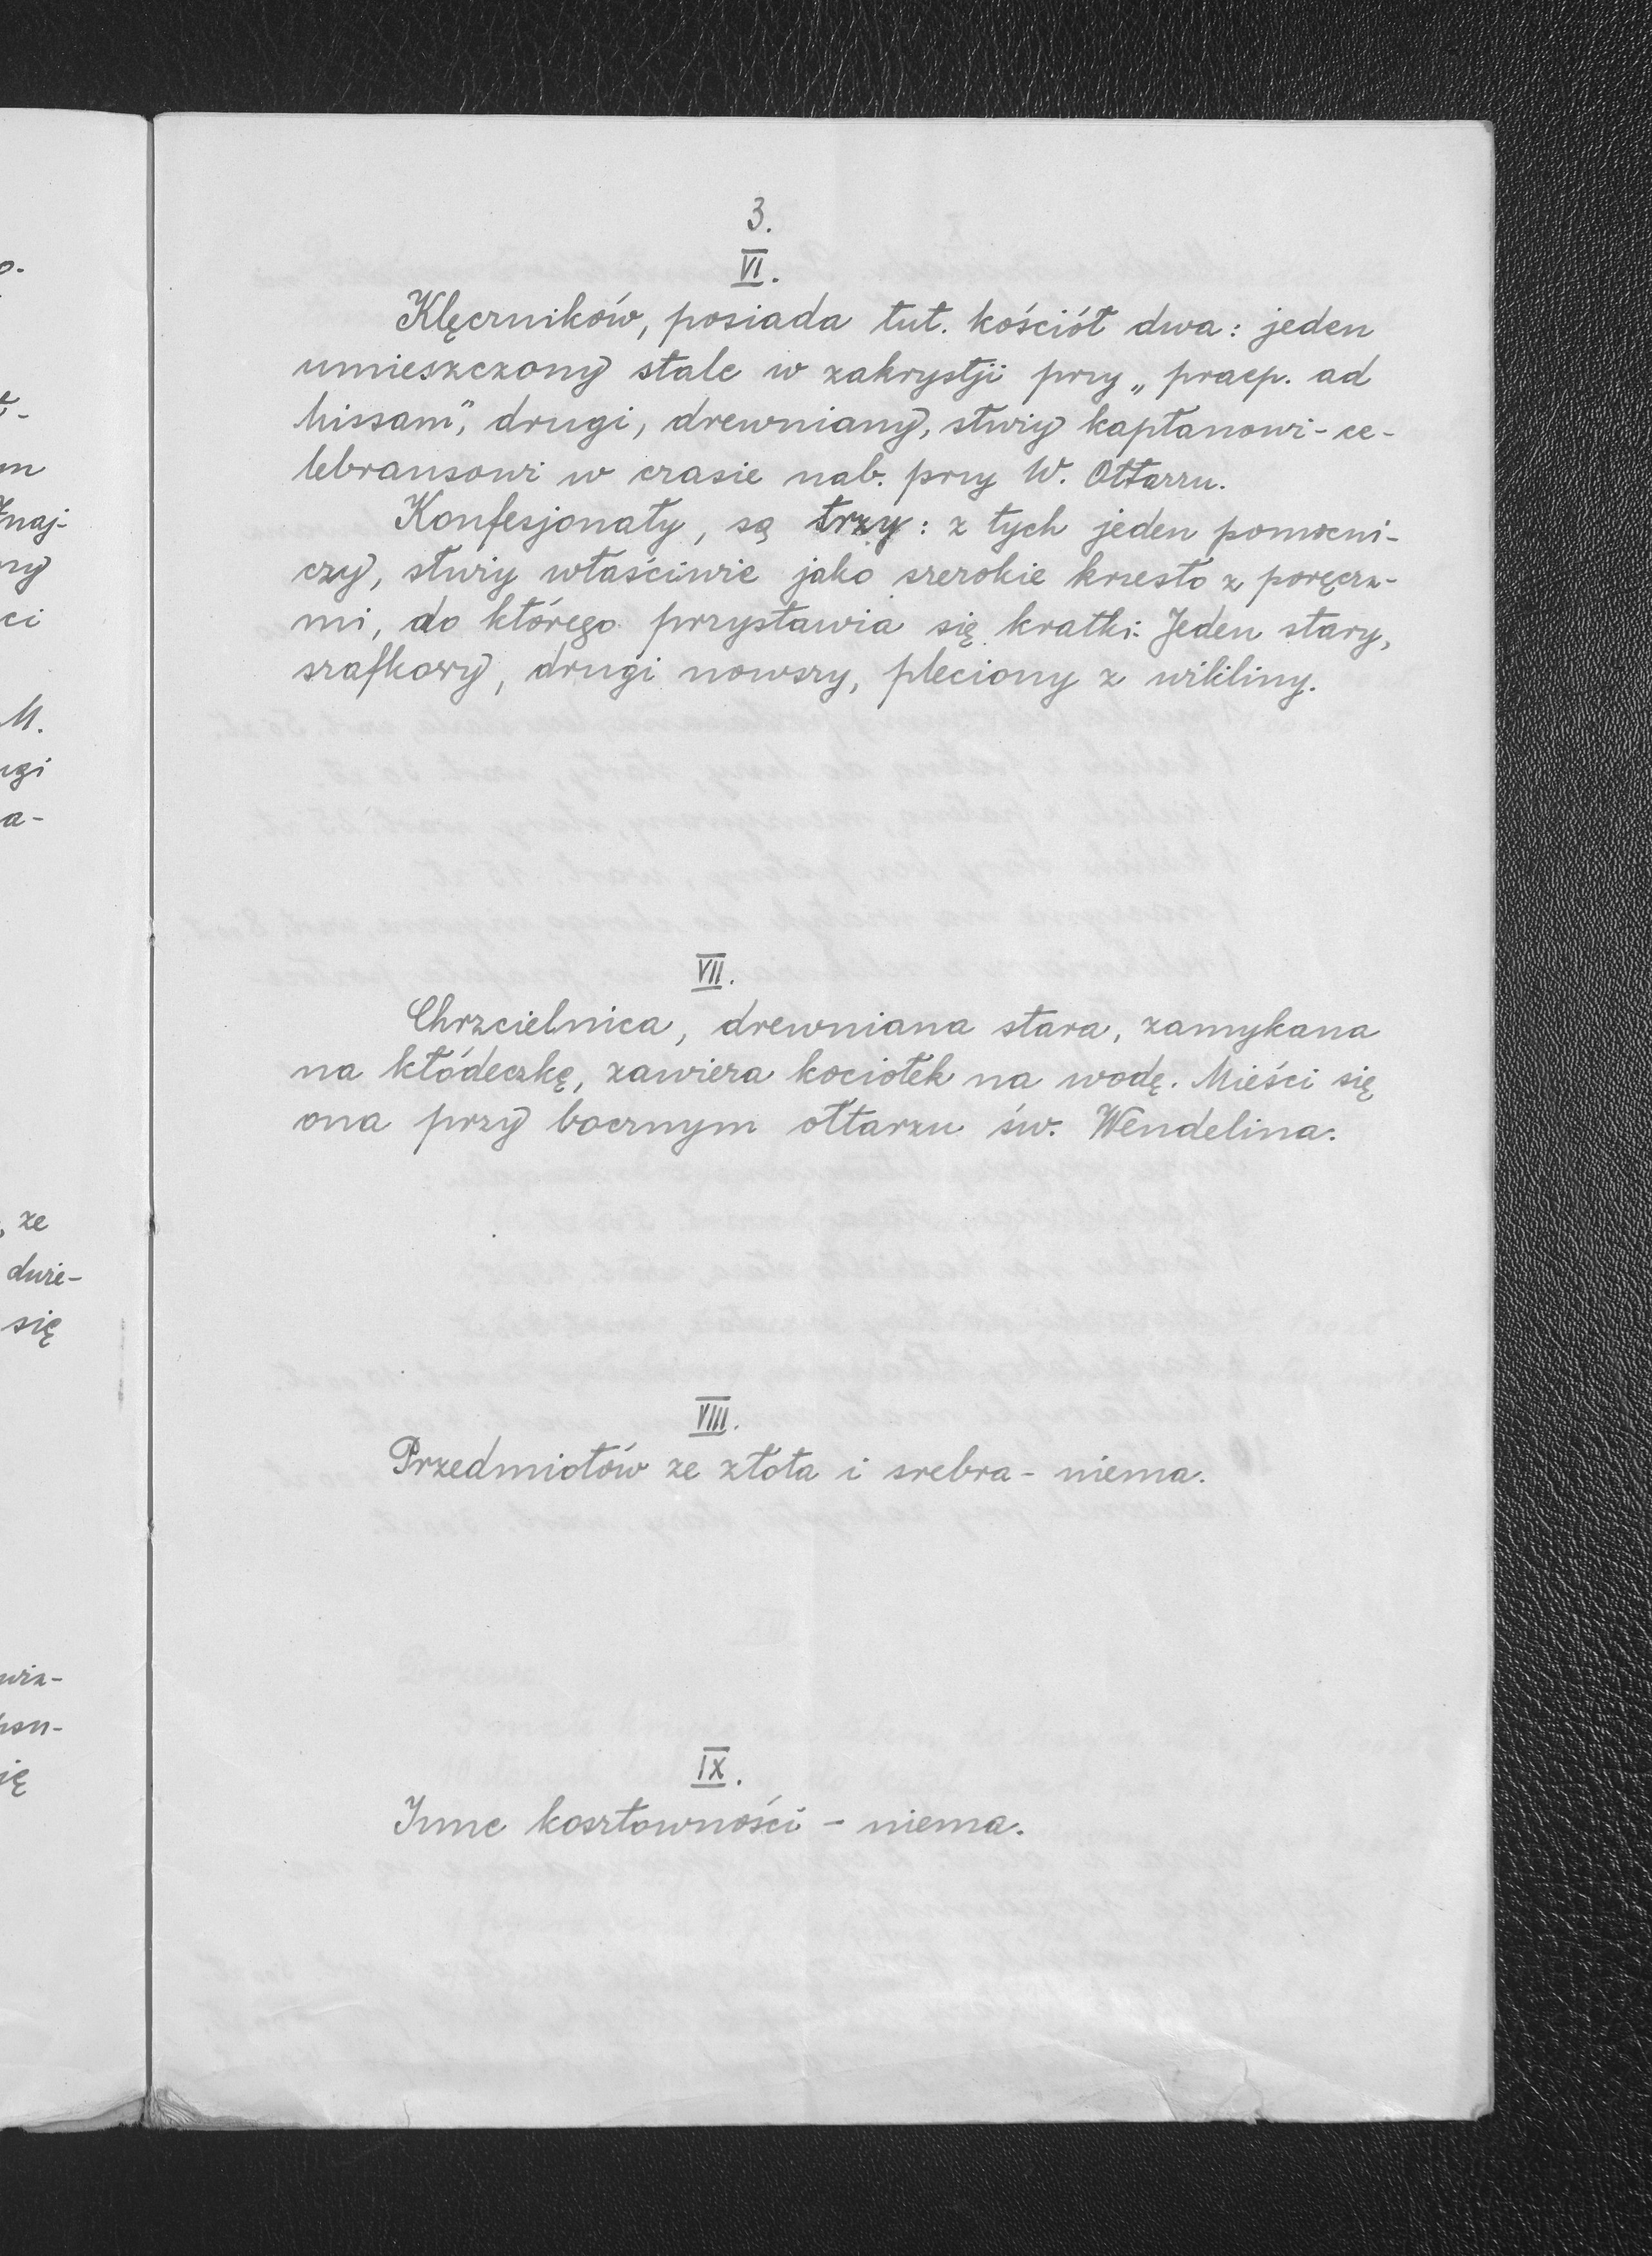 3.
VI.
Klęczników, posiada tut. kościół dwa: jeden
umieszczony stale w zakrystji przy „praep. ad
Missam", drugi, drewniany, służy kapłanowi-ce-
lebransowi w czasie nab. przy W. Ołtarzu.
Konfesjonały, są trzy: z tych jeden pomocni-
czy, służy właściwie jako szerokie krzesło z poręcza-
mi, do którego przystawia się kratki. Jeden stary,
szafkowy, drugi nowszy, pleciony z wikliny.
VII.
Chrzcielnica, drewniana stara, zamykana
na kłódeczkę, zawiera kociołek na wodę. Mieści się
ona przy bocznym ołtarzu św. Wendelina.
VIII.
Przedmiotów ze złota i srebra - niema.
IX.
Inne kosztowności - niema.